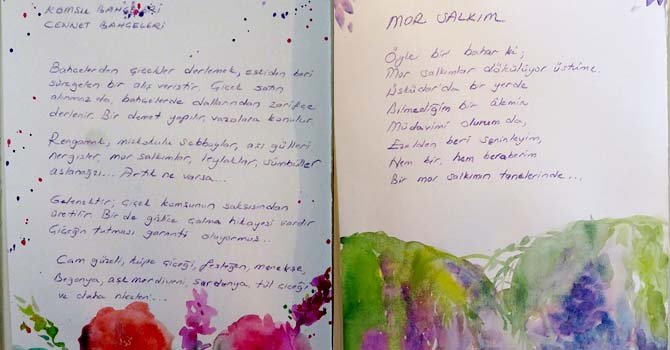 KOMŞU BAHÇELERİ
CENNET BAHÇELERİ
Bahçelerden çiçekler derlemek, eskiden beri
süregelen bir alış veriştir. Çiçek satın
alınmaz da, bahçelerde dallarından zarifçe
derlenir. Bir demet yapılır, vazolara konulur.
Rengarenk, mis kokulu şebboylar, ası gülleri
nergisler, mor salkımlar, leylaklar, sümbüller
aslanağzı... Artık ne varsa...
Gelenektir; çiçek komşunun saksısından
üretilir. Bir de gizlice çalma hikayesi vardır
Çiçeğin tutması garanti oluyormuş...
Cam güzeli, küpe çiçeği, fesleğen, menekşe,
Begonya, aşk merdiveni, sardunya, tül çiçeği
ve daha niceleri...
MOR SALKIM
Öyle bir bahar ki;
Mor salkımlar dökülüyor üstüme.
Üsküdar'da bir yerde
Bilmediğim bir âlemin
Müdavimi olurum da,
Ezelden beri seninleyim,
Hem bir, hem beraberim
Bir mor salkımın tanelerinde...